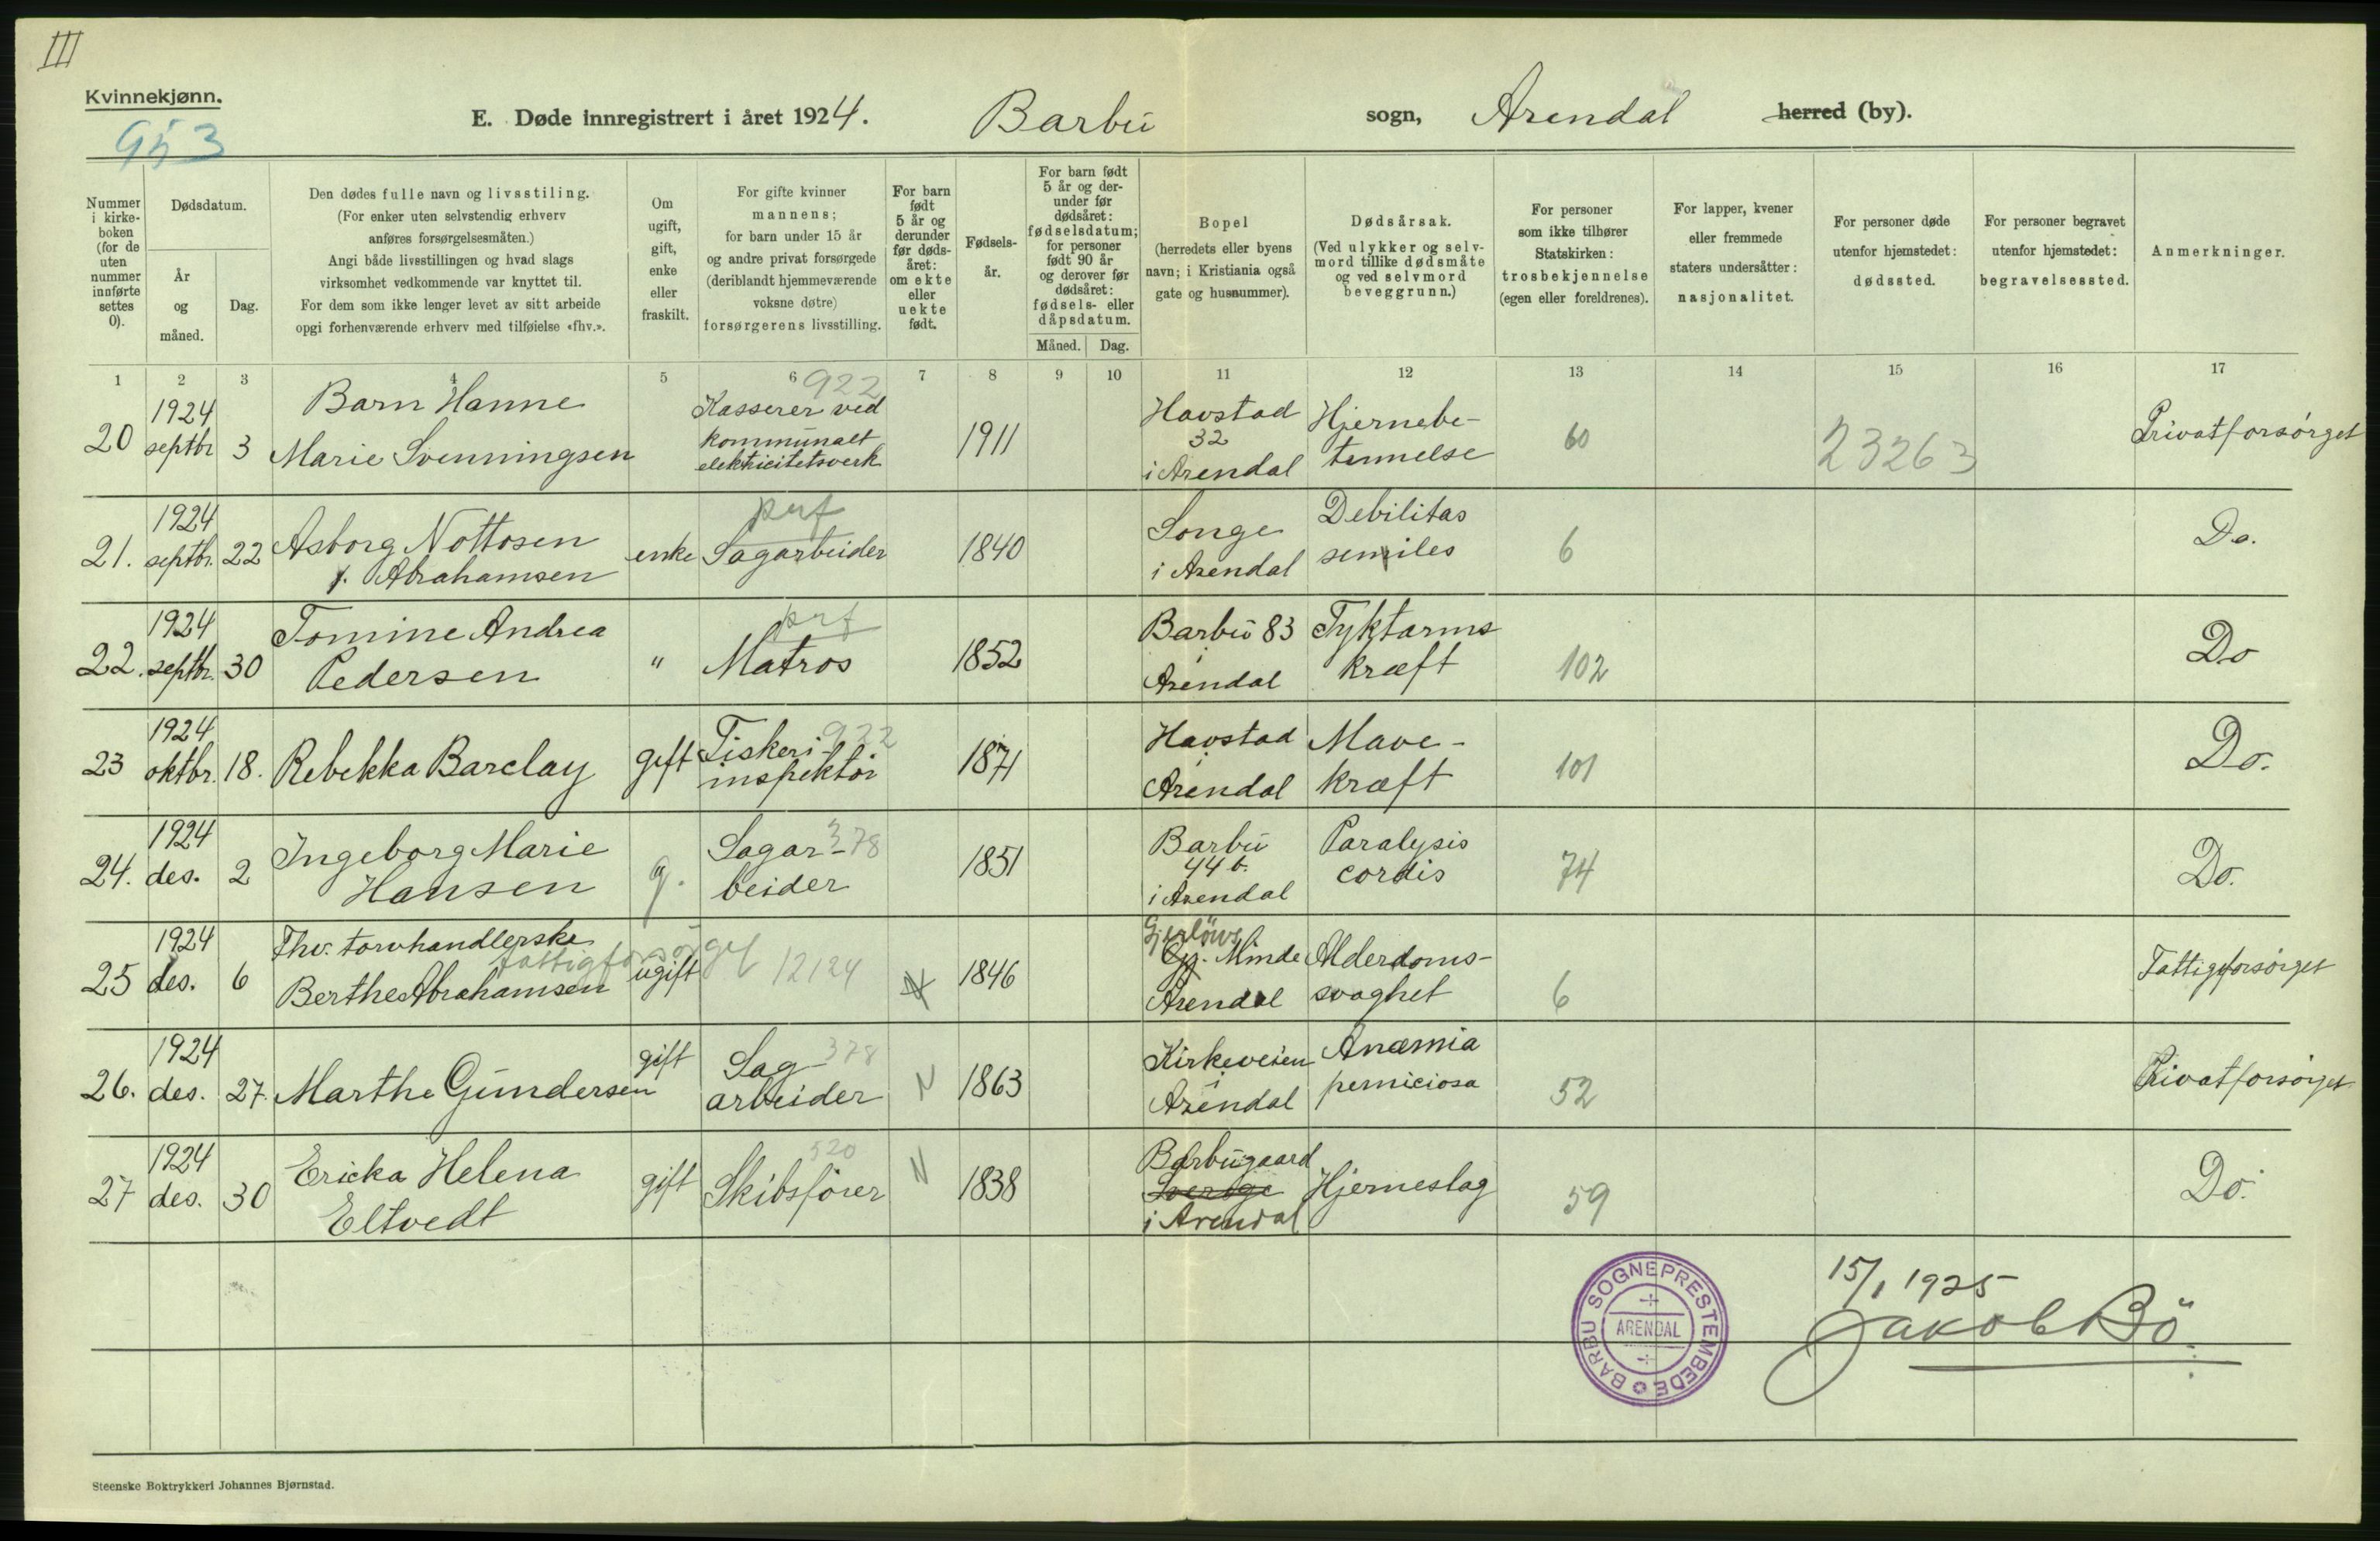 III
Kvinnekjønn.
953
E. Døde innregistrert i året 1924. Barbu sogn, Arendal herred (by).
Nummer i kirke-boken (for de uten nummer innførte settes 0).
Dødsdatum.
År og måned.
Dag.
Den dødes fulle navn og livsstiling.
(For enker uten selvstendig erhverv
anføres forsørgelsesmåten.)
Angi både livsstillingen og hvad slags
virksomhet vedkommende var knyttet til.
For dem som ikke lenger levet av sitt arbeide
opgi forhenværende erhverv med tilføielse «fhv.».
Om ugift, gift, enke eller fraskilt.
For gifte kvinner
mannens;
for barn under 15 år
og andre privat forsørgede
(deriblandt hjemmeværende
voksne døtre)
forsørgerens livsstilling.
For barn født 5 år og derunder før døds-året: om ekte eller uekte født.
Fødsels-år.
For barn født 5 år og der-under før dødsåret: fødselsdatum; for personer født 90 år og derover før dødsåret: fødsels- eller dåpsdatum.
Måned. Dag.
Bopel
(herredets eller byens
navn; i Kristiania også
gate og husnummer).
Dødsårsak.
(Ved ulykker og selv-
mord tillike dødsmåte
og ved selvmord
beveggrunn.)
For personer
som ikke tilhører
Statskirken:
trosbekjennelse
(egen eller foreldrenes).
For lapper, kvener
eller fremmede
staters undersåtter:
nasjonalitet.
For personer døde
utenfor hjemstedet:
dødssted.
For personer begravet
utenfor hjemstedet:
begravelsessted.
Anmerkninger.
1 2 3 4 5 6 7 8 9 10 11 12 13 14 15 16 17
20 1924 septbr 3 Barn Hanne Marie Svenningsen 922 Kasserer ved kommunalt elektricitetsverk 1911 Havstad 32 i Arendal Hjernebe-tennelse 60 23263 Privatforsørget
21. 1924 septbr. 22 Asborg Nottosen f. Abrahamsen enke prf Sagarbeider 1840 Songe i Arendal Debilitas seniles 6 Do.
22. 1924 septbr. 30 Tomine Andrea Pedersen " prf Matros 1852 Barbu 83 Arendal Tyktarms kræft 102 Do
23 1924 oktbr. 18. Rebekka Barclay gift Fiskeri 922 inspektør 1871 Havstad Arendal Mave-kræft 101 Do.
24. 1924 des. 2 Ingeborg Marie Hansen g. Sagar-378 beider 1851 Barbu 44 b. i Arendal Paralysis cordis 74 Do.
25 1924 des. 6 Fhv. torvhandlerske fattigforsørget Berthe Abrahamsen ugift 12124 N 1846 Gjerløws Gj. Minde Arendal Alderdoms-svaghet 6 Fattigforsørget
26. 1924 des. 27. Marthe Gundersen gift Sag 378 arbeider N 1863 Kirkeveien Arendal Anæmia perniciosa 52 Privatforsørget
27 1924 des. 30 Ericka Helena Eltvedt gift 520 Skibsfører N 1838 Barbugaard i Arendal Hjerneslag 59 Do.
BARBU SOGNEPRESTEMBEDE
ARENDAL
15/1 1925
Jakob Bö
Steenske Boktrykkeri Johannes Bjørnstad.